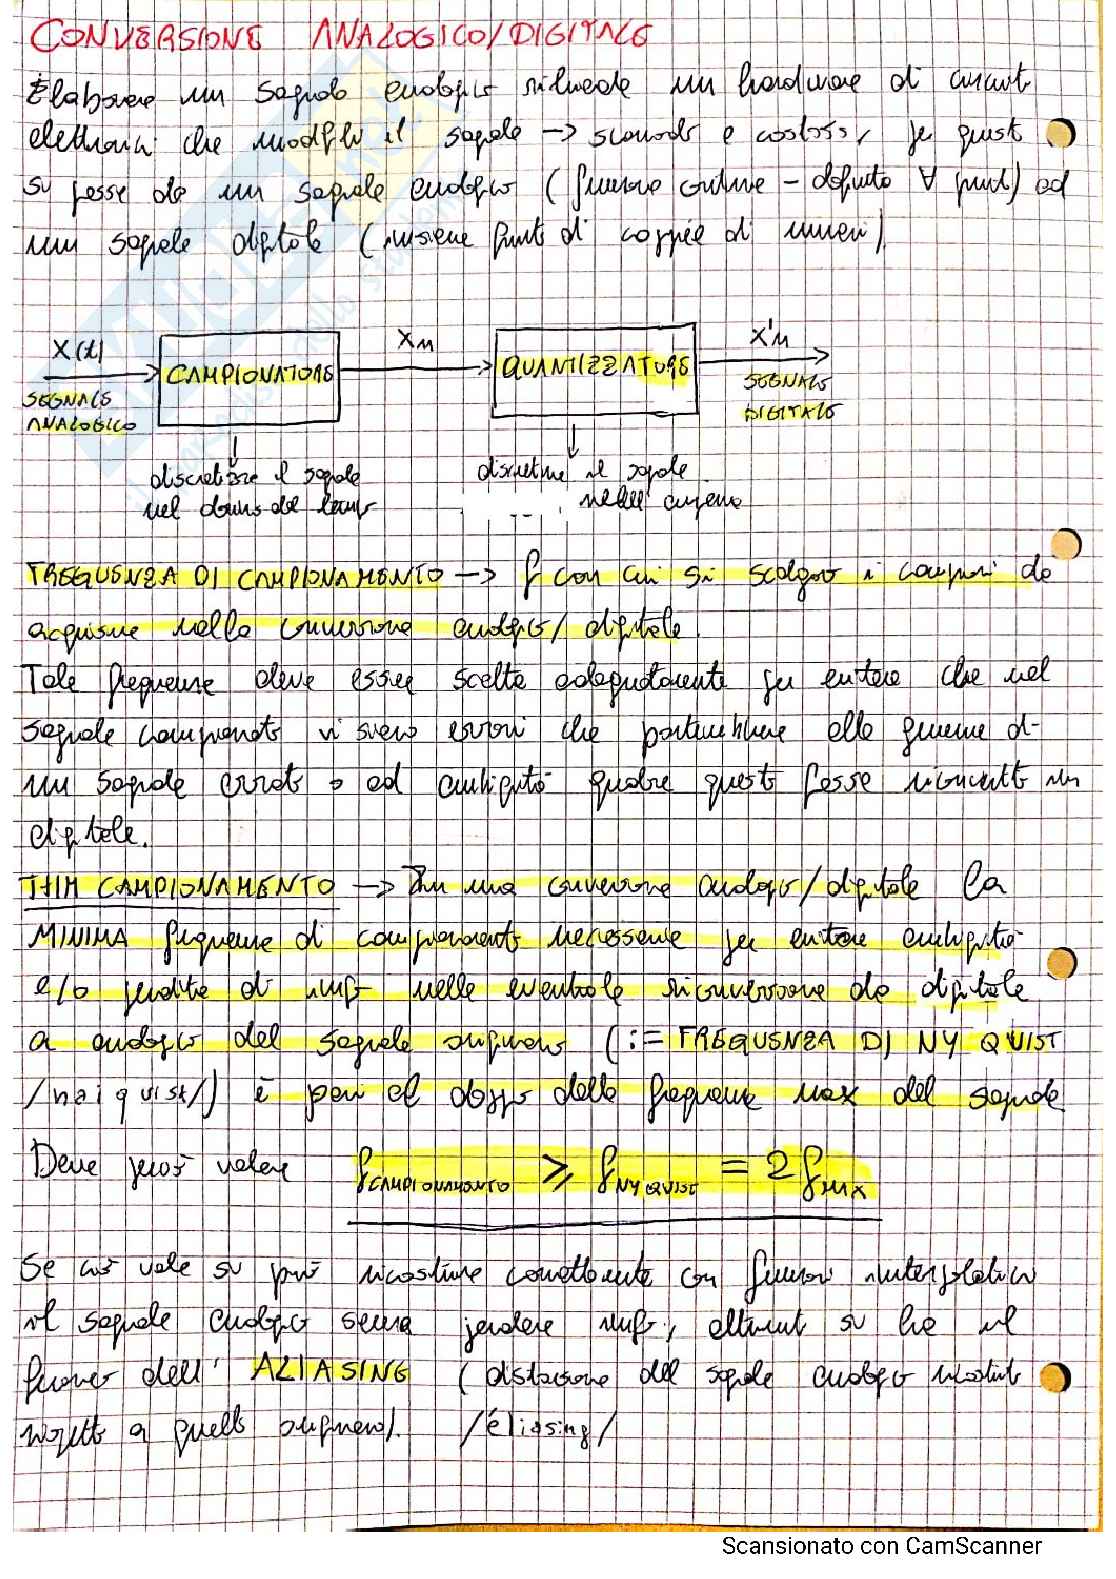 CONVERSIONE ANALOGICO/DIGITALE
Elaborare un segnale analogico richiede un hardware di circuiti
elettronici che modifichi il segnale → scomodo e costoso, per questo
si passa da un segnale analogico (funzione continua - definito ∀ punto) ad
un segnale digitale (insieme finito di coppie di numeri)
X(t)
SEGNALE
ANALOGICO
CAMPIONATORE
Xn
QUANTIZZATORE
X'n
SEGNALE
DIGITALE
discretizza il segnale
nel dominio del tempo
discretizza il segnale
nelle ampiezze
FREQUENZA DI CAMPIONAMENTO → f con cui si scelgono i campioni da
acquisire nella conversione analogico/digitale.
Tale frequenza deve essere scelta adeguatamente per evitare che nel
segnale campionato vi siano errori che porterebbero alla
un segnale errato o ad ambiguità qualora questo fosse riconvertito in
digitale.
THM CAMPIONAMENTO → In una conversione analogico/digitale la
MINIMA frequenza di campionamento necessaria per evitare ambiguità
e/o perdita di info nella eventuale riconversione da digitale
a analogico del segnale originario (:= FREQUENZA DI NYQUIST
/naiquist/) è pari al doppio della frequenza max del segnale
Deve perciò valere f CAMPIONAMENTO ⩾ f NYQUIST = 2 f MAX
Se ciò vale si può ricostruire correttamente con funzioni interpolatrici
il segnale analogico senza perdere info, altrimenti si ha il
fenomeno dell' ALIASING (distorsione del segnale analogico ricostruito
rispetto a quello originario). /éliasing/
Scansionato con CamScanner